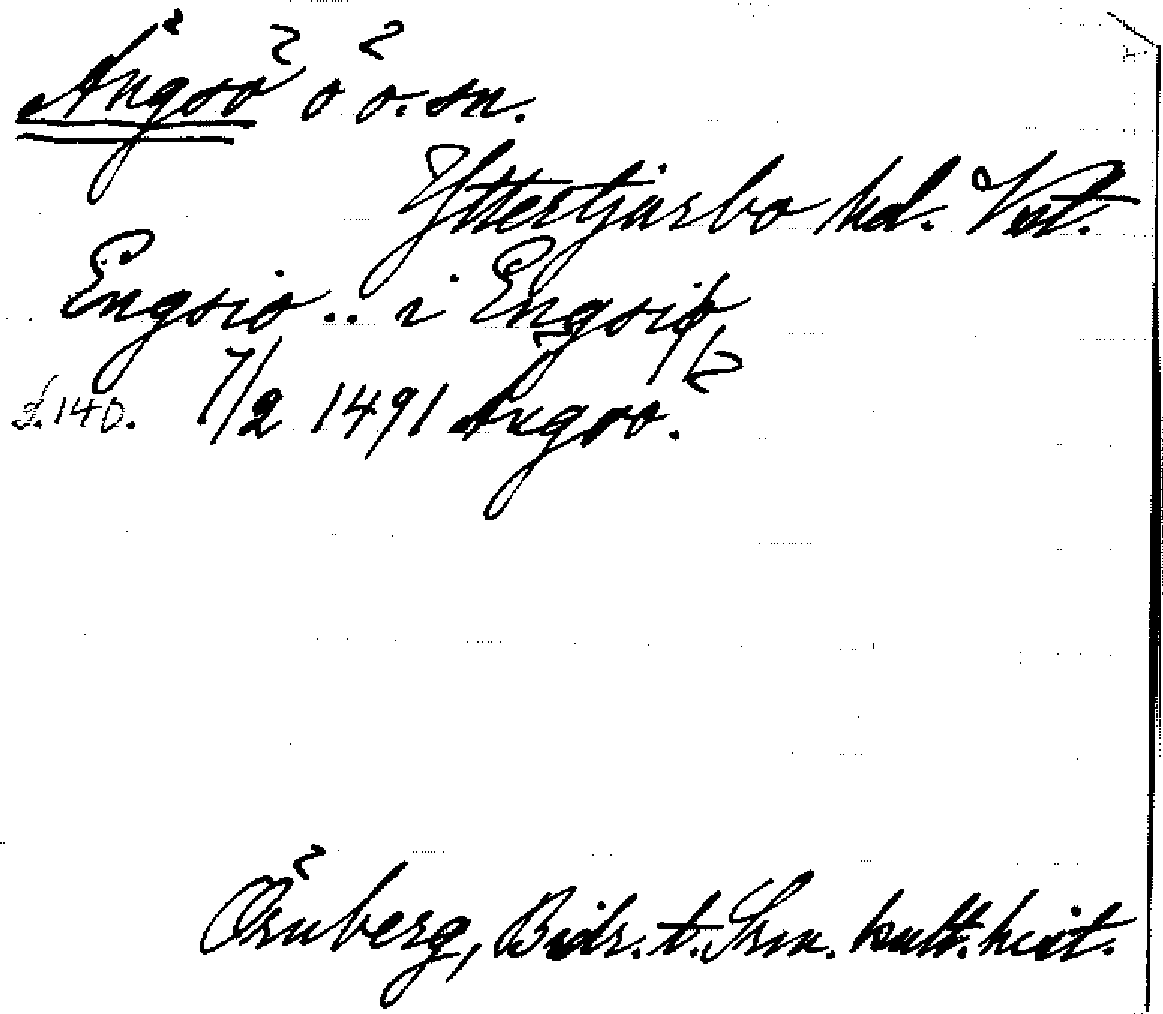 Ängsö ö o. sn.
Yttertjurbo hd. Vstm.
Engsiö .. i Engsiö
s. 140. 7/2 1491 Ängsö.
Örnberg, Bidr. t. Svn. kult. hist.